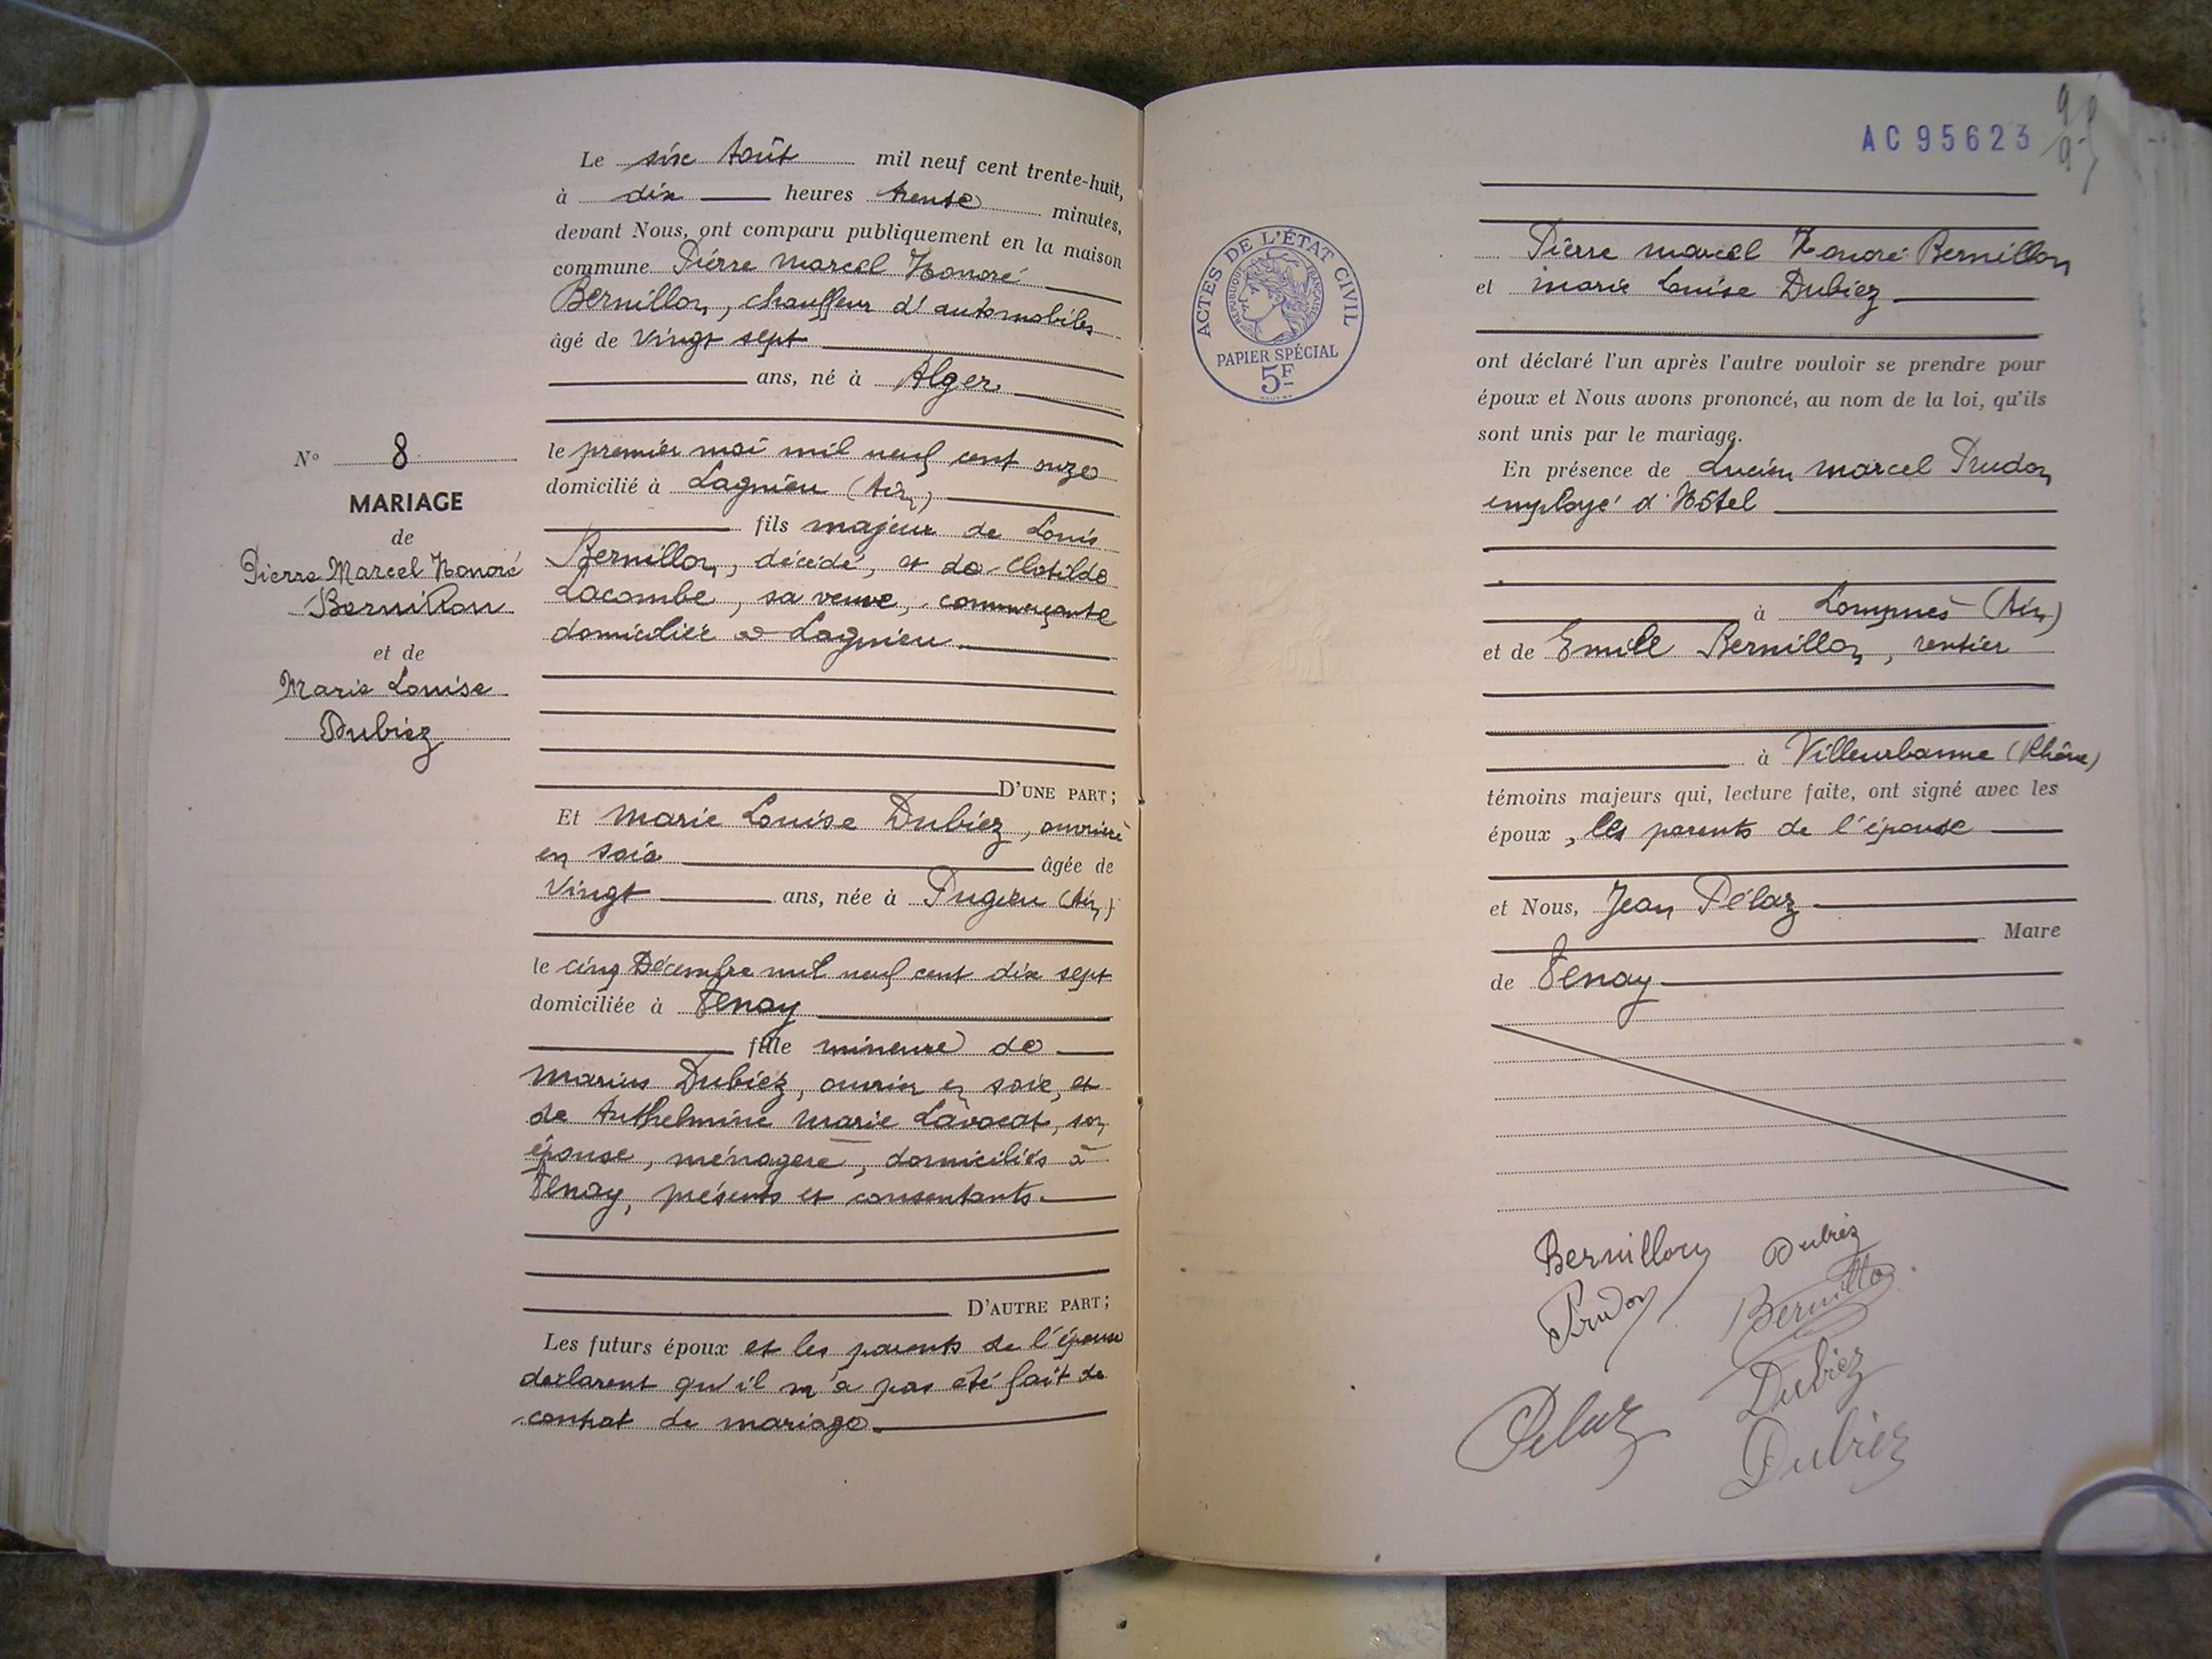 Le six Août mil neuf cent trente-huit,
à dix heures trente minutes,
devant Nous, ont comparu publiquement en la maison
commune Pierre Marcel Honoré
Bernillon, chauffeur d'automobiles
âgé de vingt sept
ans, né à Alger
le premier mai mil neuf cent onze
domicilié à Lagnieu (Ain)
fils majeur de Louis
Bernillon, décédé, et de Clotilde
Lacombe, sa veuve, commerçante
domiciliée à Lagnieu.
D'UNE PART;
Et Marie Louise Dubiez, ouvrière
en soie âgée de
vingt ans, née à Pugieu (Ain)
le cinq Décembre mil neuf cent dix sept
domiciliée à Tenay
fille mineure de
Marius Dubiez, ouvrier en soie, et
de Anthelmine Marie Lavocat, son
épouse, ménagère, domiciliés à
Tenay, présents et consentants.
D'AUTRE PART;
Les futurs époux et les parents de l'épouse
déclarent qu'il n'a pas été fait de
contrat de mariage.
N° 8
MARIAGE
de
Pierre Marcel Honoré
Bernillon
et de
Marie Louise
Dubiez
AC 95623
ACTES DE L'ÉTAT CIVIL
RÉPUBLIQUE FRANÇAISE
PAPIER SPÉCIAL
5F
Pierre Marcel Honoré Bernillon
et Marie Louise Dubiez
ont déclaré l'un après l'autre vouloir se prendre pour
époux et Nous avons prononcé, au nom de la loi, qu'ils
sont unis par le mariage.
En présence de Lucien Marcel Prudon
employé d'Hôtel
à Lompnes (Ain)
et de Emile Bernillon, rentier
à Villeurbanne (Rhône)
témoins majeurs qui, lecture faite, ont signé avec les
époux, les parents de l'épouse
et Nous, Jean Pélaz
Maire
de Tenay
Bernillon Dubiez
Prudon Bernillon
Dubiez
Pelaz Dubiez